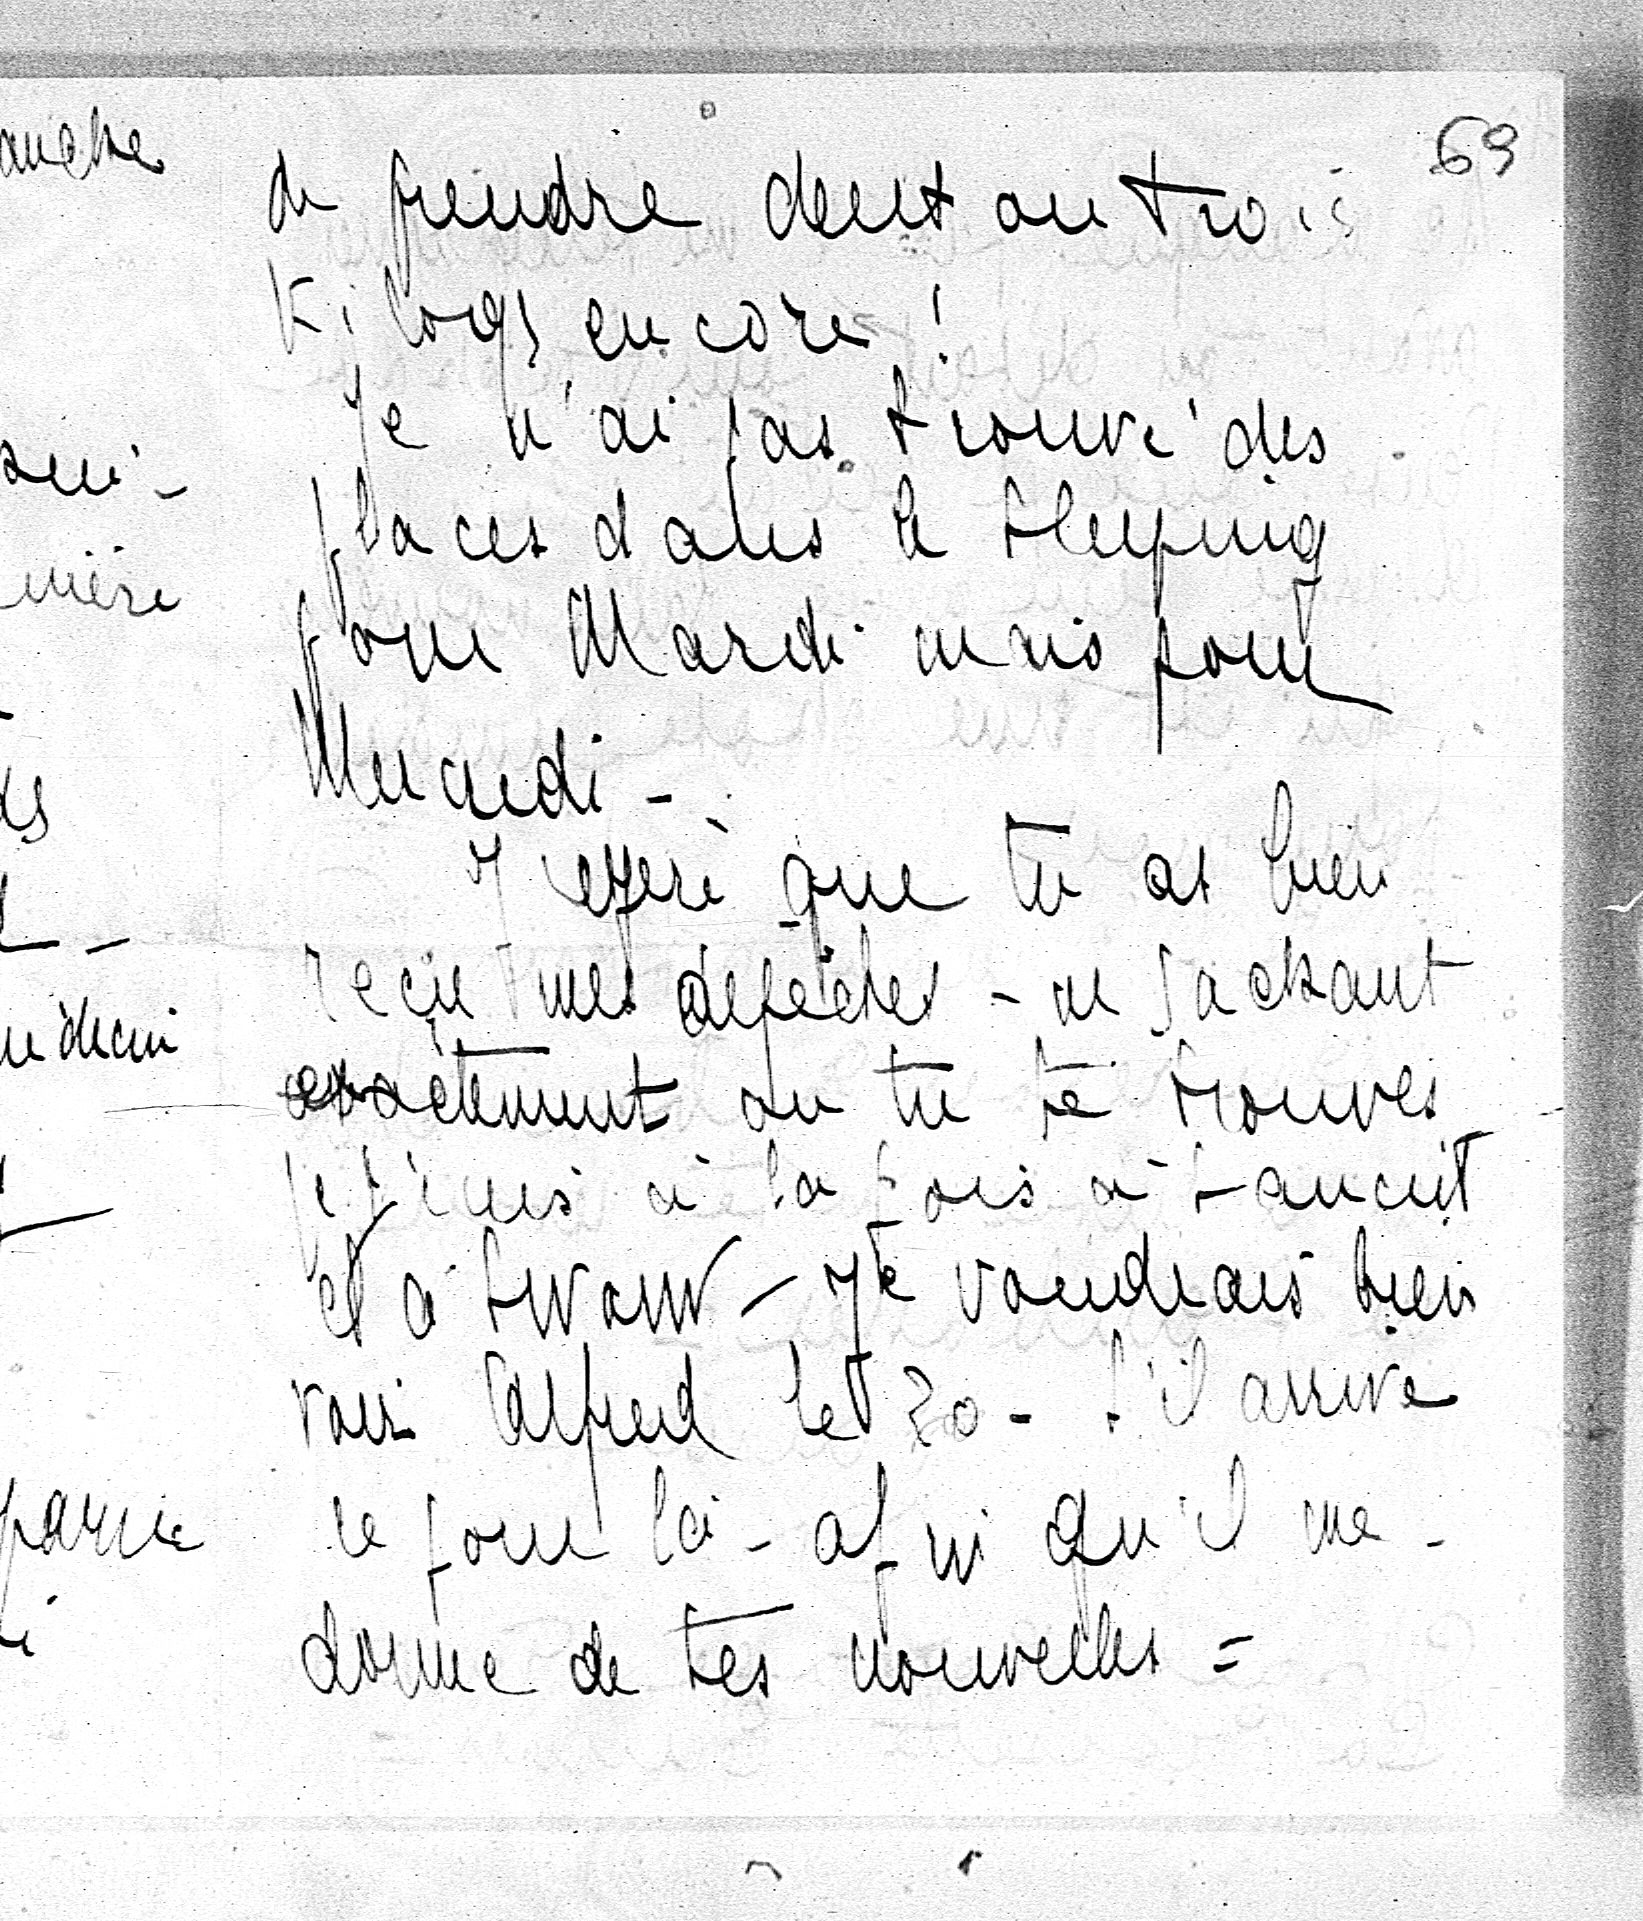 69
de prendre deux ou trois
Kilogs encore !
Je n'ai pas trouvé des
places dans le sleeping
pour Mardi mais pour
Mercredi -
J'espère que tu as bien
reçu mes dépêches - ne sachant
exactement ou tu te trouves
à la fois à
et à - Je voudrais bien
voir Alfred le 20 - s'il arrive
ce jour là - afin qu'il me -
donne de tes nouvelles =
anche
mière
médecin